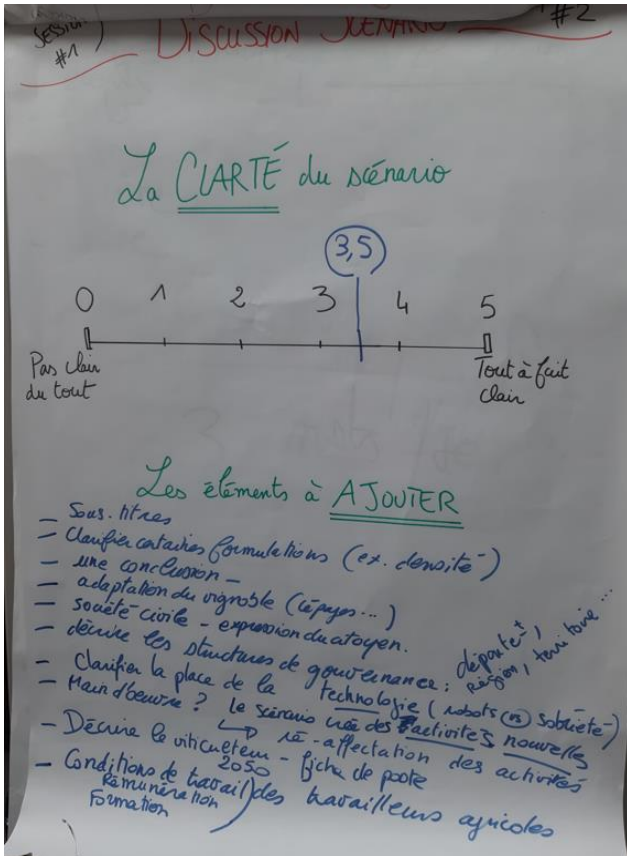 SESSION #1
#2
DISCUSSION SCENARIO
La CLARTÉ du scénario
3,5
0 1 2 3 4 5
Pas clair du tout
Tout à fait clair
Les éléments à AJOUTER
— Sous-titres
— Clarifier certaines formulations (ex. densité)
— une conclusion —
— adaptation du vignoble (cépages...)
— société civile - expression du citoyen.
— décrire les structures de gouvernance : départe-t, région, territoire...
— Clarifier la place de la technologie (robots vs sobriété)
— Main d'oeuvre ? Le scénario crée des activités nouvelles
↳ ré-affectation des activités
— Décrire le viticulteur 2050 - fiche de poste
— Conditions de travail
Rémunération
Formation
) des travailleurs agricoles